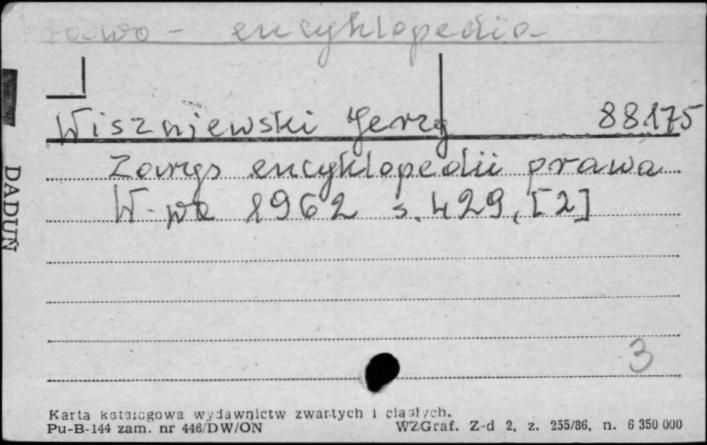 Prawo - encyklopedia
Wiszniewski Jerzy 88175
Zarys encyklopedii prawa
W-wa 1962 s. 429, [2]
DADUŃ
3
Karta katalogowa wydawnictw zwartych i ciągłych.
Pu-B-144 zam. nr 446/DW/ON WZGraf. Z-d 2, z. 255/86, n. 6 350 000